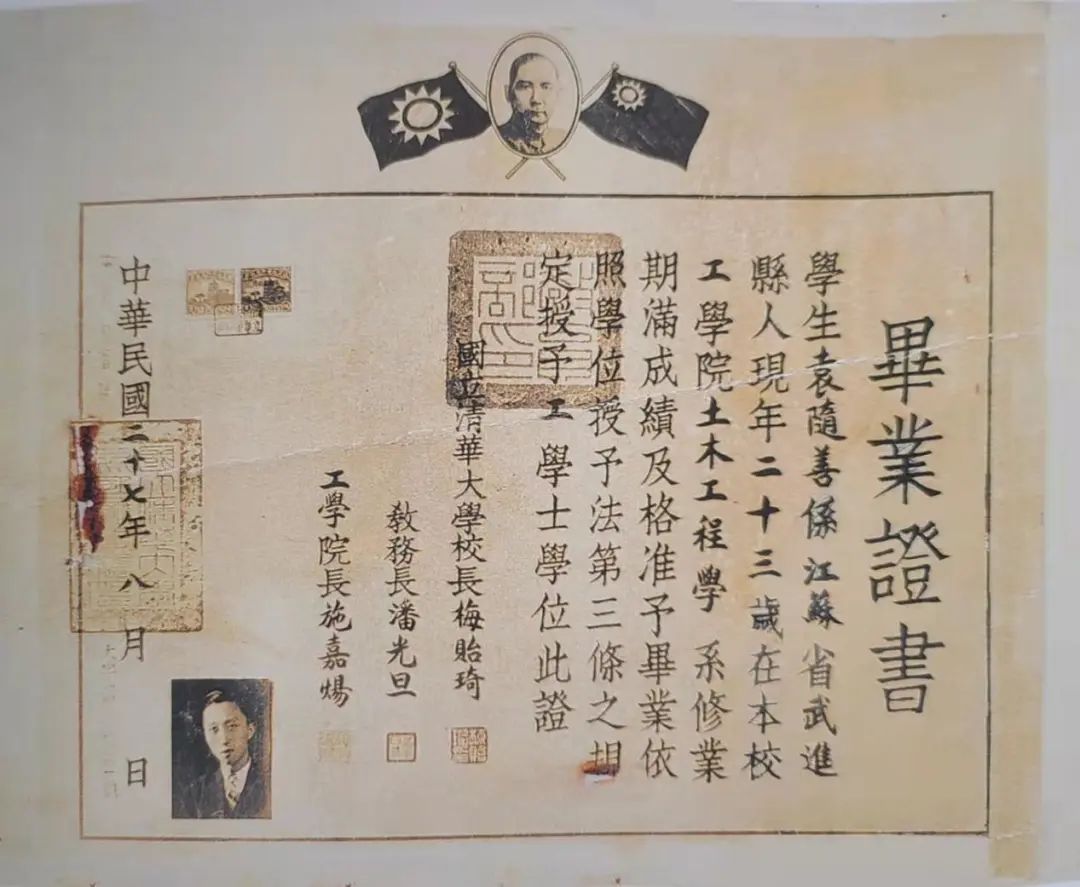 畢業證書
學生袁隨善係江蘇省武進
縣人現年二十三歲在本校
工學院土木工程學系修業
期滿成績及格准予畢業依
照學位授予法第三條之規
定授予工學士學位此證
國立清華大學校長梅貽琦
教務長潘光旦
工學院長施嘉煬
中華民國二十七年八月日